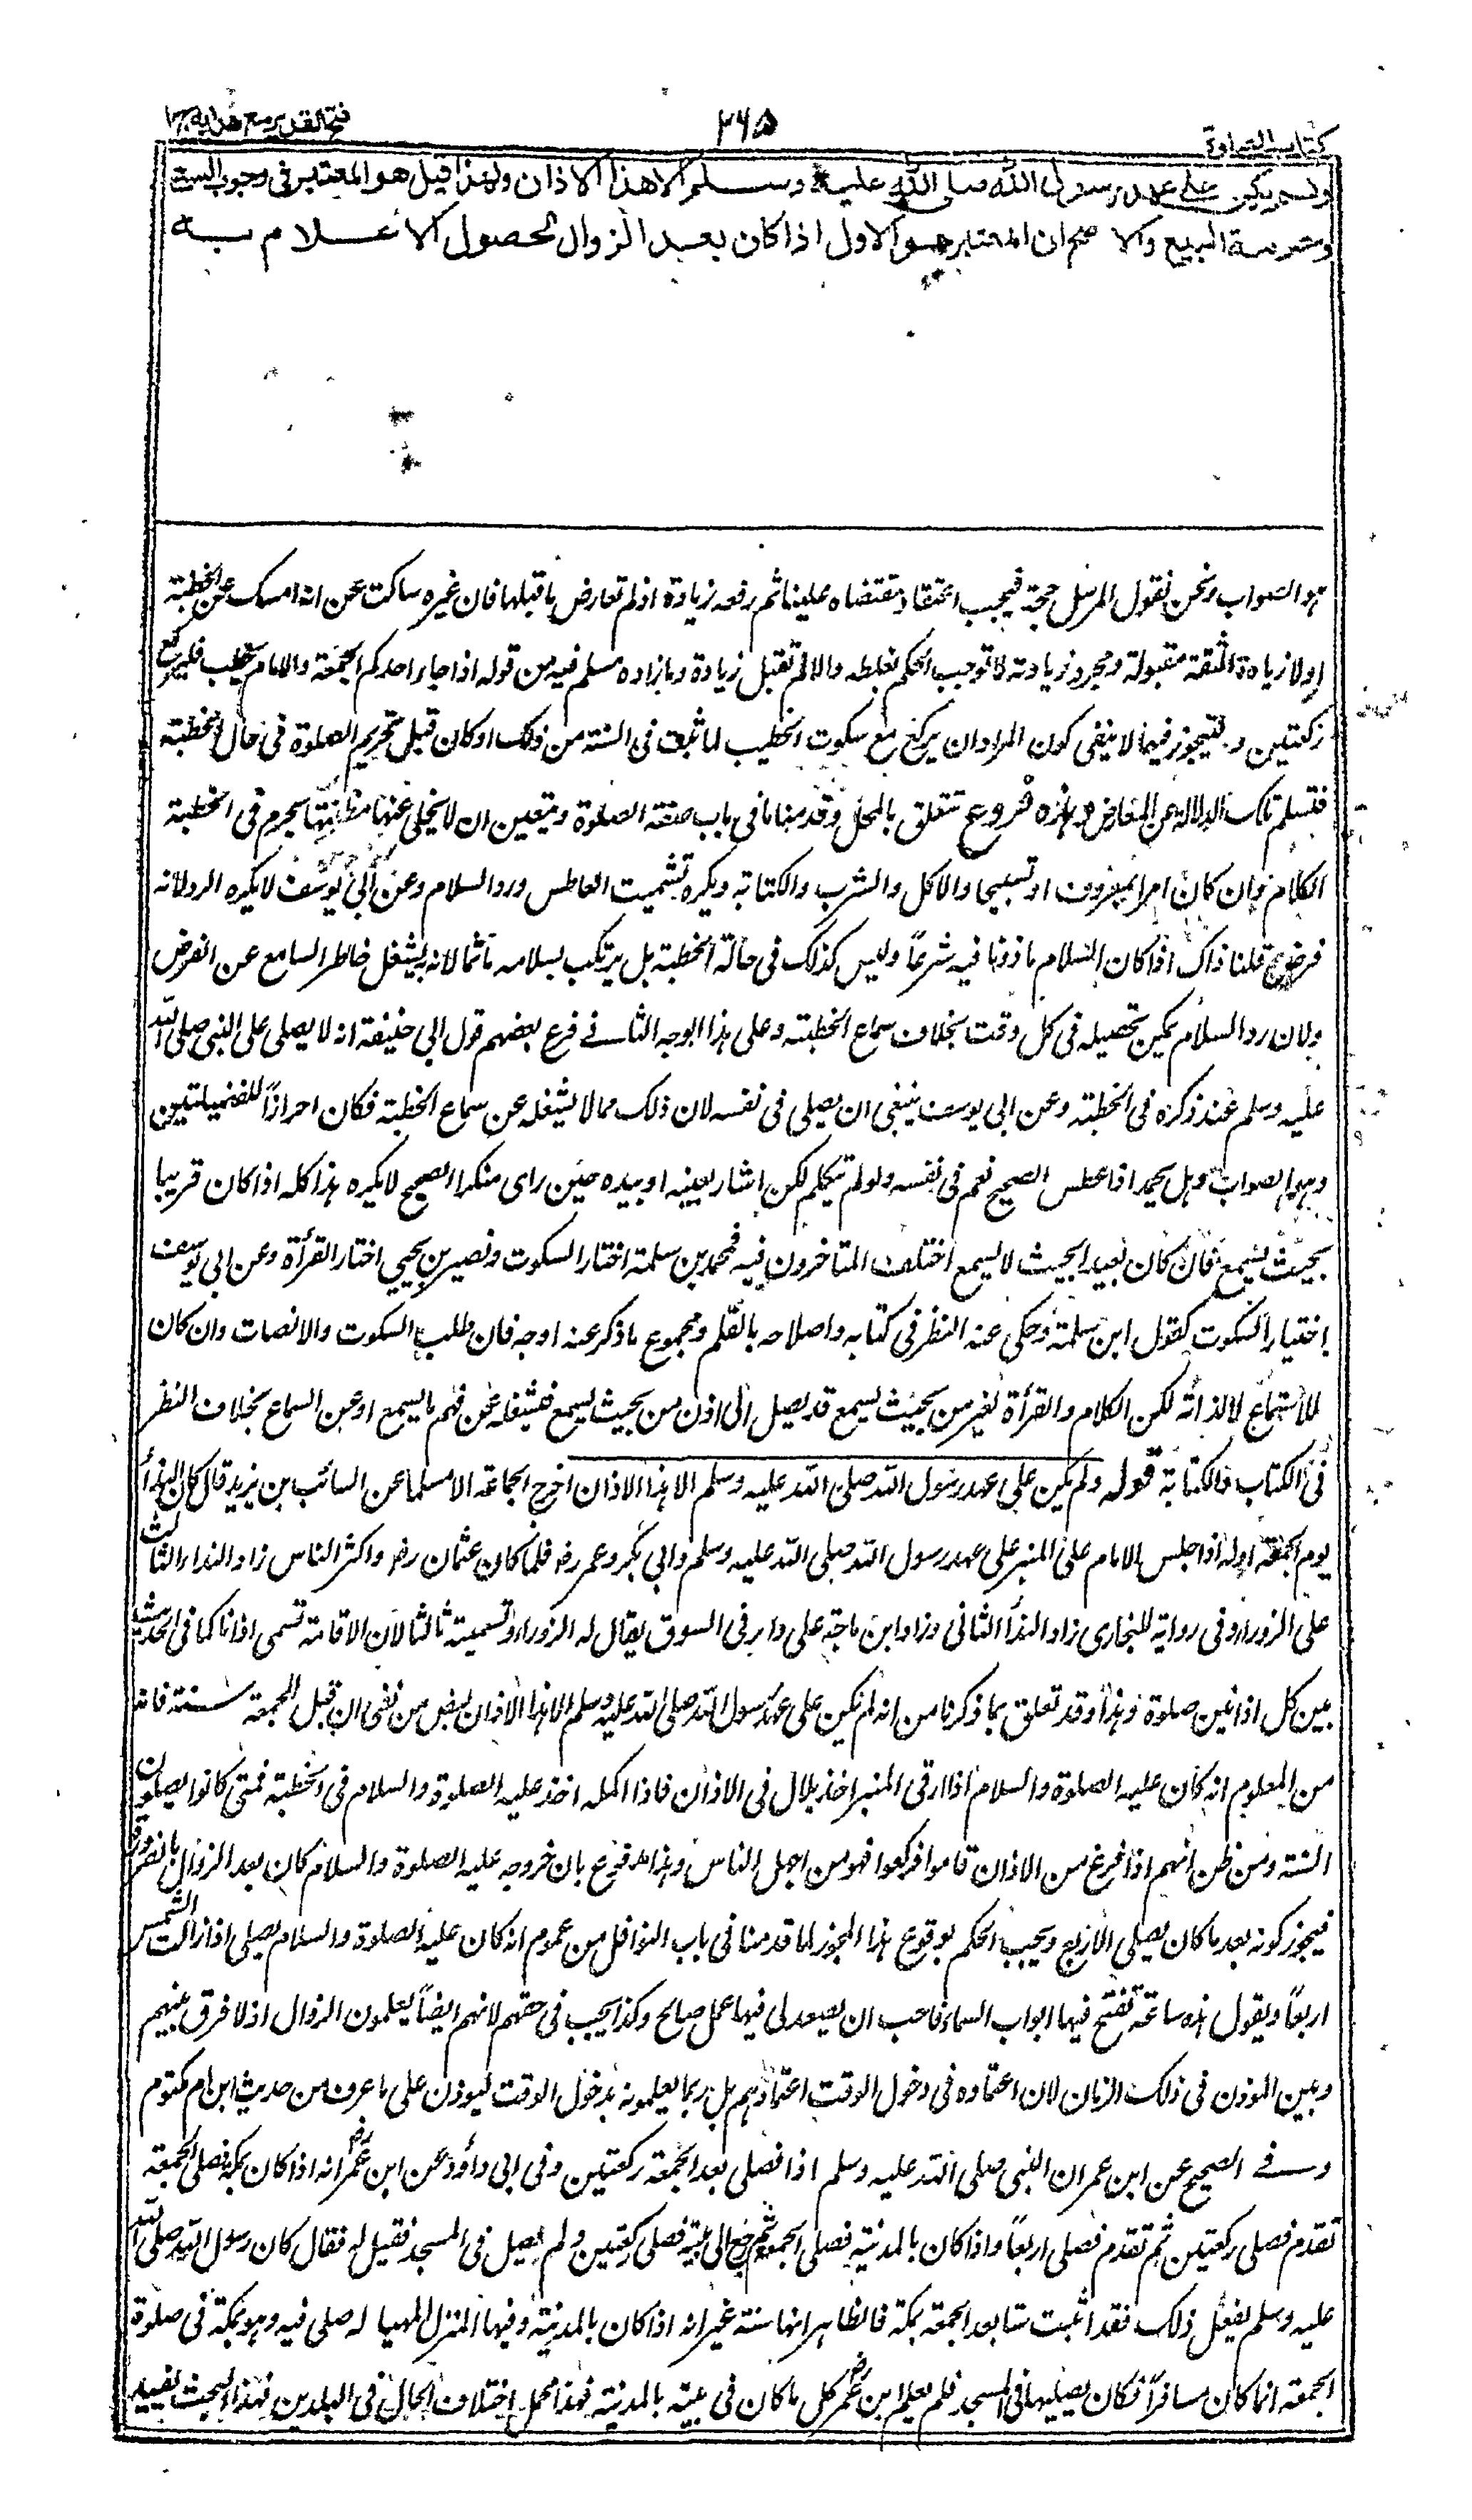 كتاب الصلوة
٢٦٥
فتح القدير مع هدايه ج١
ولم يكن على عهد رسول الله صلى الله عليه وسلم الا هذا الاذان ولهذا قيل هو المعتبر فى وجوب السعى
وحرمة البيع والاصح ان المعتبر هو الاول اذا كان بعد الزوال لحصول الاعلام به
هو الصواب ونحن نقول المرسل حجة فيجب اعتقاد مقتضاه علينا ثم رفعه زيادة اذ لم تعارض ما قبلها فان غيره ساكت عن انه امسك عن الخطبة
اولا وزيادة الثقة مقبولة ومجرد زيادته لا توجب الحكم بغلطه والا لم تقبل زيادة وما زاده مسلم فيه من قوله اذا جاء احدكم الجمعة والامام يخطب فليركع
ركعتين وليتجوز فيهما لا ينفى كون المراد ان يركع مع سكوت الخطيب لما ثبت فى السنة من ذلك او كان قبل تحريم الصلوة فى حال الخطبة
فتسلم تلك الدلالة عن المعارض وهذه فروع تتعلق بالمحل وقد مناها فى باب صفة الصلوة ويتعين ان لا يخلى عنها مظنتها يحرم فى الخطبة
الكلام وان كان امرا بمعروف او تسبيحا والاكل والشرب والكتابة ويكره تشميت العاطس ورد السلام وعن ابى يوسف لا يكره الرد لانه
فرض قلنا ذاك اذا كان السلام ماذونا فيه شرعاً وليس كذلك فى حالة الخطبة بل يرتكب بسلامه ماثما لانه يشغل خاطر السامع عن الفرض
ولان رد السلام يمكن تحصيله فى كل وقت بخلاف سماع الخطبة وعلى هذا الوجه الثانى فرع بعضهم قول ابى حنيفة انه لا يصلى على النبى صلى الله
عليه وسلم عند ذكره فى الخطبة وعن ابى يوسف ينبغى ان يصلى فى نفسه لان ذلك مما لا يشغله عن سماع الخطبة فكان احرازاً للفضيلتين
وهو الصواب وهل يحمد اذا عطس الصحيح نعم فى نفسه ولو لم يتكلم لكن اشار بعينه او بيده حين راى منكرا الصحيح لا يكره هذا كله اذا كان قريبا
بحيث يسمع فان كان بعيدا بحيث لا يسمع اختلف المتاخرون فيه فمحمد بن سلمة اختار السكوت ونصير بن يحيى اختار القرأة وعن ابى يوسف
اختيار السكوت كقول ابن سلمة وحكى عنه النظر فى كتابه واصلاحه بالقلم ومجموع ما ذكر عنه اوجه فان طلب السكوت والانصات وان كان
للاستماع لا لذاته لكن الكلام والقرأة لغير من بحيث يسمع قد يصل الى اذن من بحيث يسمع فيشغله عن فهم ما يسمع او عن السماع بخلاف النظر
فى الكتاب والكتابة قوله ولم يكن على عهد رسول الله صلى الله عليه وسلم الا هذا الاذان اخرج الجماعة الا مسلما عن السائب بن يزيد قال كان النداء
يوم الجمعة اوله اذا جلس الامام على المنبر على عهد رسول الله صلى الله عليه وسلم وابى بكر وعمر رض فلما كان عثمان رض واكثر الناس زاد النداء الثالث
على الزوراء وفى رواية للبخارى زاد النداء الثانى وزاد ابن ماجة على دار فى السوق يقال له الزوراء وتسميته ثالثا لان الاقامة تسمى اذانا كما فى الحديث
بين كل اذانين صلوة وهذا وقد تعلق بما ذكرنا من انه لم يكن على عهد رسول الله صلى الله عليه وسلم الا هذا الاذان بعض من نفى ان قبل الجمعة سنة فانه
من المعلوم انه كان عليه الصلوة والسلام اذا رقى المنبر اخذ بلال فى الاذان فاذا اكمله اخذ عليه الصلوة والسلام فى الخطبة فمتى كانوا يصلون
السنة ومن ظن انهم اذا فرغ من الاذان قاموا فركعوا فهو من اجهل الناس وهذا مدفوع بان خروجه عليه الصلوة والسلام كان بعد الزوال بالضرورة
فيجوز كونه بعد ما كان يصلى الاربع ويجب الحكم بوقوع هذا المجوز لما قدمنا فى باب النوافل من عموم انه كان عليه الصلوة والسلام يصلى اذا زالت الشمس
اربعاً ويقول هذه ساعة تفتح فيها ابواب السماء فاحب ان يصعد لى فيها عمل صالح وكذا يجب فى حقهم لانهم ايضاً يعلمون الزوال اذ لا فرق بينهم
وبين المؤذن فى ذلك الزمان لان اعتماده فى دخول الوقت اعتمادهم بل ربما يعلمونه بدخول الوقت ليؤذن على ما عرف من حديث ابن ام مكتوم
وفى الصحيح عن ابن عمر ان النبى صلى الله عليه وسلم اذا فصلى بعد الجمعة ركعتين وفى ابى داؤد عن ابن عمر رض انه اذا كان بمكة فصلى الجمعة
تقدم فصلى ركعتين ثم تقدم فصلى اربعاً واذا كان بالمدينة فصلى الجمعة ثم رجع الى بيته فصلى ركعتين ولم يصل فى المسجد فقيل له فقال كان رسول الله صلى الله
عليه وسلم يفعل ذلك فقد اثبت ستا بعد الجمعة بمكة فالظاهر انها سنة غير انه اذا كان بالمدينة وفيها المنزل المهيا له صلى فيه وهو بمكة فى صلوة
الجمعة انما كان مسافراً فكان يصليها فى المسجد فلم يعلم ابن عمر رض كل ما كان فى بيته بالمدينة فهذا محمل اختلاف الحال فى البلدين فهذا البحث يفيد